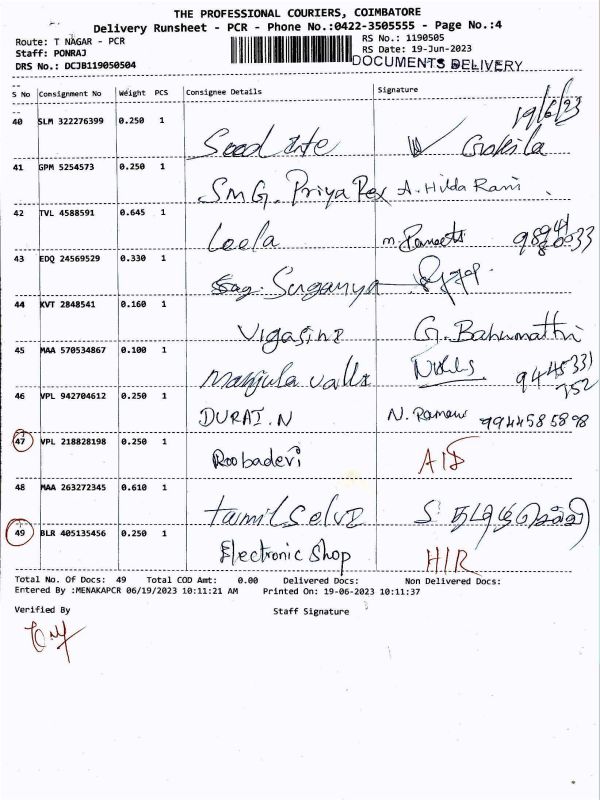 THE PROFESSIONAL COURIERS, COIMBATORE
Delivery Runsheet - PCR - Phone No.:0422-3505555 - Page No.:4
Route: T NAGAR - PCR RS No.: 1190505
Staff: PONRAJ RS Date: 19-Jun-2023
DRS No.: DCJB119050504 DOCUMENTS DELIVERY
S No Consignment No Weight PCS Consignee Details Signature
19/6/23
40 SLM 322276399 0.250 1 Gokila
41 GPM 5254573 0.250 1 SMG. Priya Rex A. Hilda Rani
42 TVL 4588591 0.645 1 Leela
43 EDQ 24569529 0.330 1 Suganya
44 KVT 2848541 0.160 1 Vigasini G. Banumathi
45 MAA 570534867 0.100 1 Manjula valli 9445331752
46 VPL 942704612 0.250 1 DURAI.N N. Raman 9944585898
47 VPL 218828198 0.250 1 Roobadevi
48 MAA 263272345 0.610 1 tamil selvi
49 BLR 405135456 0.250 1 Electronic Shop
Total No. Of Docs: 49 Total COD Amt: 0.00 Delivered Docs: Non Delivered Docs:
Entered By :MENAKAPCR 06/19/2023 10:11:21 AM Printed On: 19-06-2023 10:11:37
Verified By Staff Signature